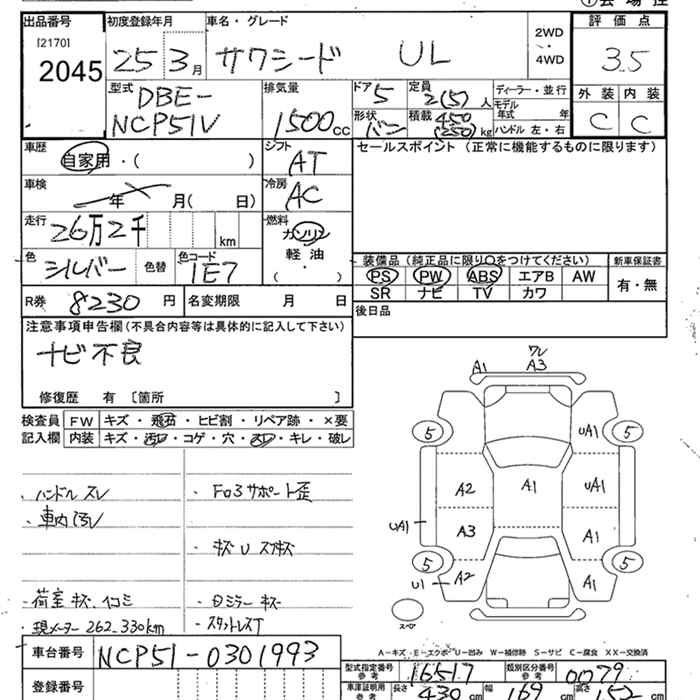 出品番号
[2170]
2045
初度登録年月
25 3月
車名・グレード
サクシード UL
2WD
・
4WD
評価点
3.5
外装 内装
C C
型式
DBE-
NCP51V
排気量
1500cc
ドア 5
形状 バン
定員 2(5)人
積載 450(250)kg
ディーラー・並行
モデル年式 年
ハンドル 左・右
車歴
自家用・( )
シフト
AT
セールスポイント (正常に機能するものに限ります)
車検
年 月( 日)
冷房
AC
走行
26万2千
km
燃料
ガソリン
軽油
・
( )
色
シルバー
色替
色コード
1E7
装備品 (純正品に限り○をつけてください)
PS PW ABS エアB AW
SR ナビ TV カワ
新車保証書
有・無
R券 8230 円
名変期限 月 日
後日品
注意事項申告欄(不具合内容等は具体的に記入して下さい)
ナビ不良
修復歴 有 [箇所 ]
検査員
記入欄
FW キズ・飛石・ヒビ割・リペア跡・×要
内装 キズ・汚レ・コゲ・穴・スレ・キレ・破レ
・ハンドルスレ
・車内汚レ
・荷室キズ、イコミ
・現メーター262,330km
・Fロ3サポート歪
・キズUスリキズ
・ロミラーキズ
・スタットレスT
ワレ
A1 A3
5 5
UA1
A2 A1 UA1
UA1 A3 A1
5 5
U1 A2 A1
スペア
A-キズ E-エクボ U-凹み W-補修跡 S-サビ C-腐食 XX-交換済
車台番号 NCP51-0301993
登録番号
型式指定番号
参考
16517
類別区分番号
参考
0079
車庫証明用
参考
長さ 430 cm 幅 169 cm 高さ 152 cm